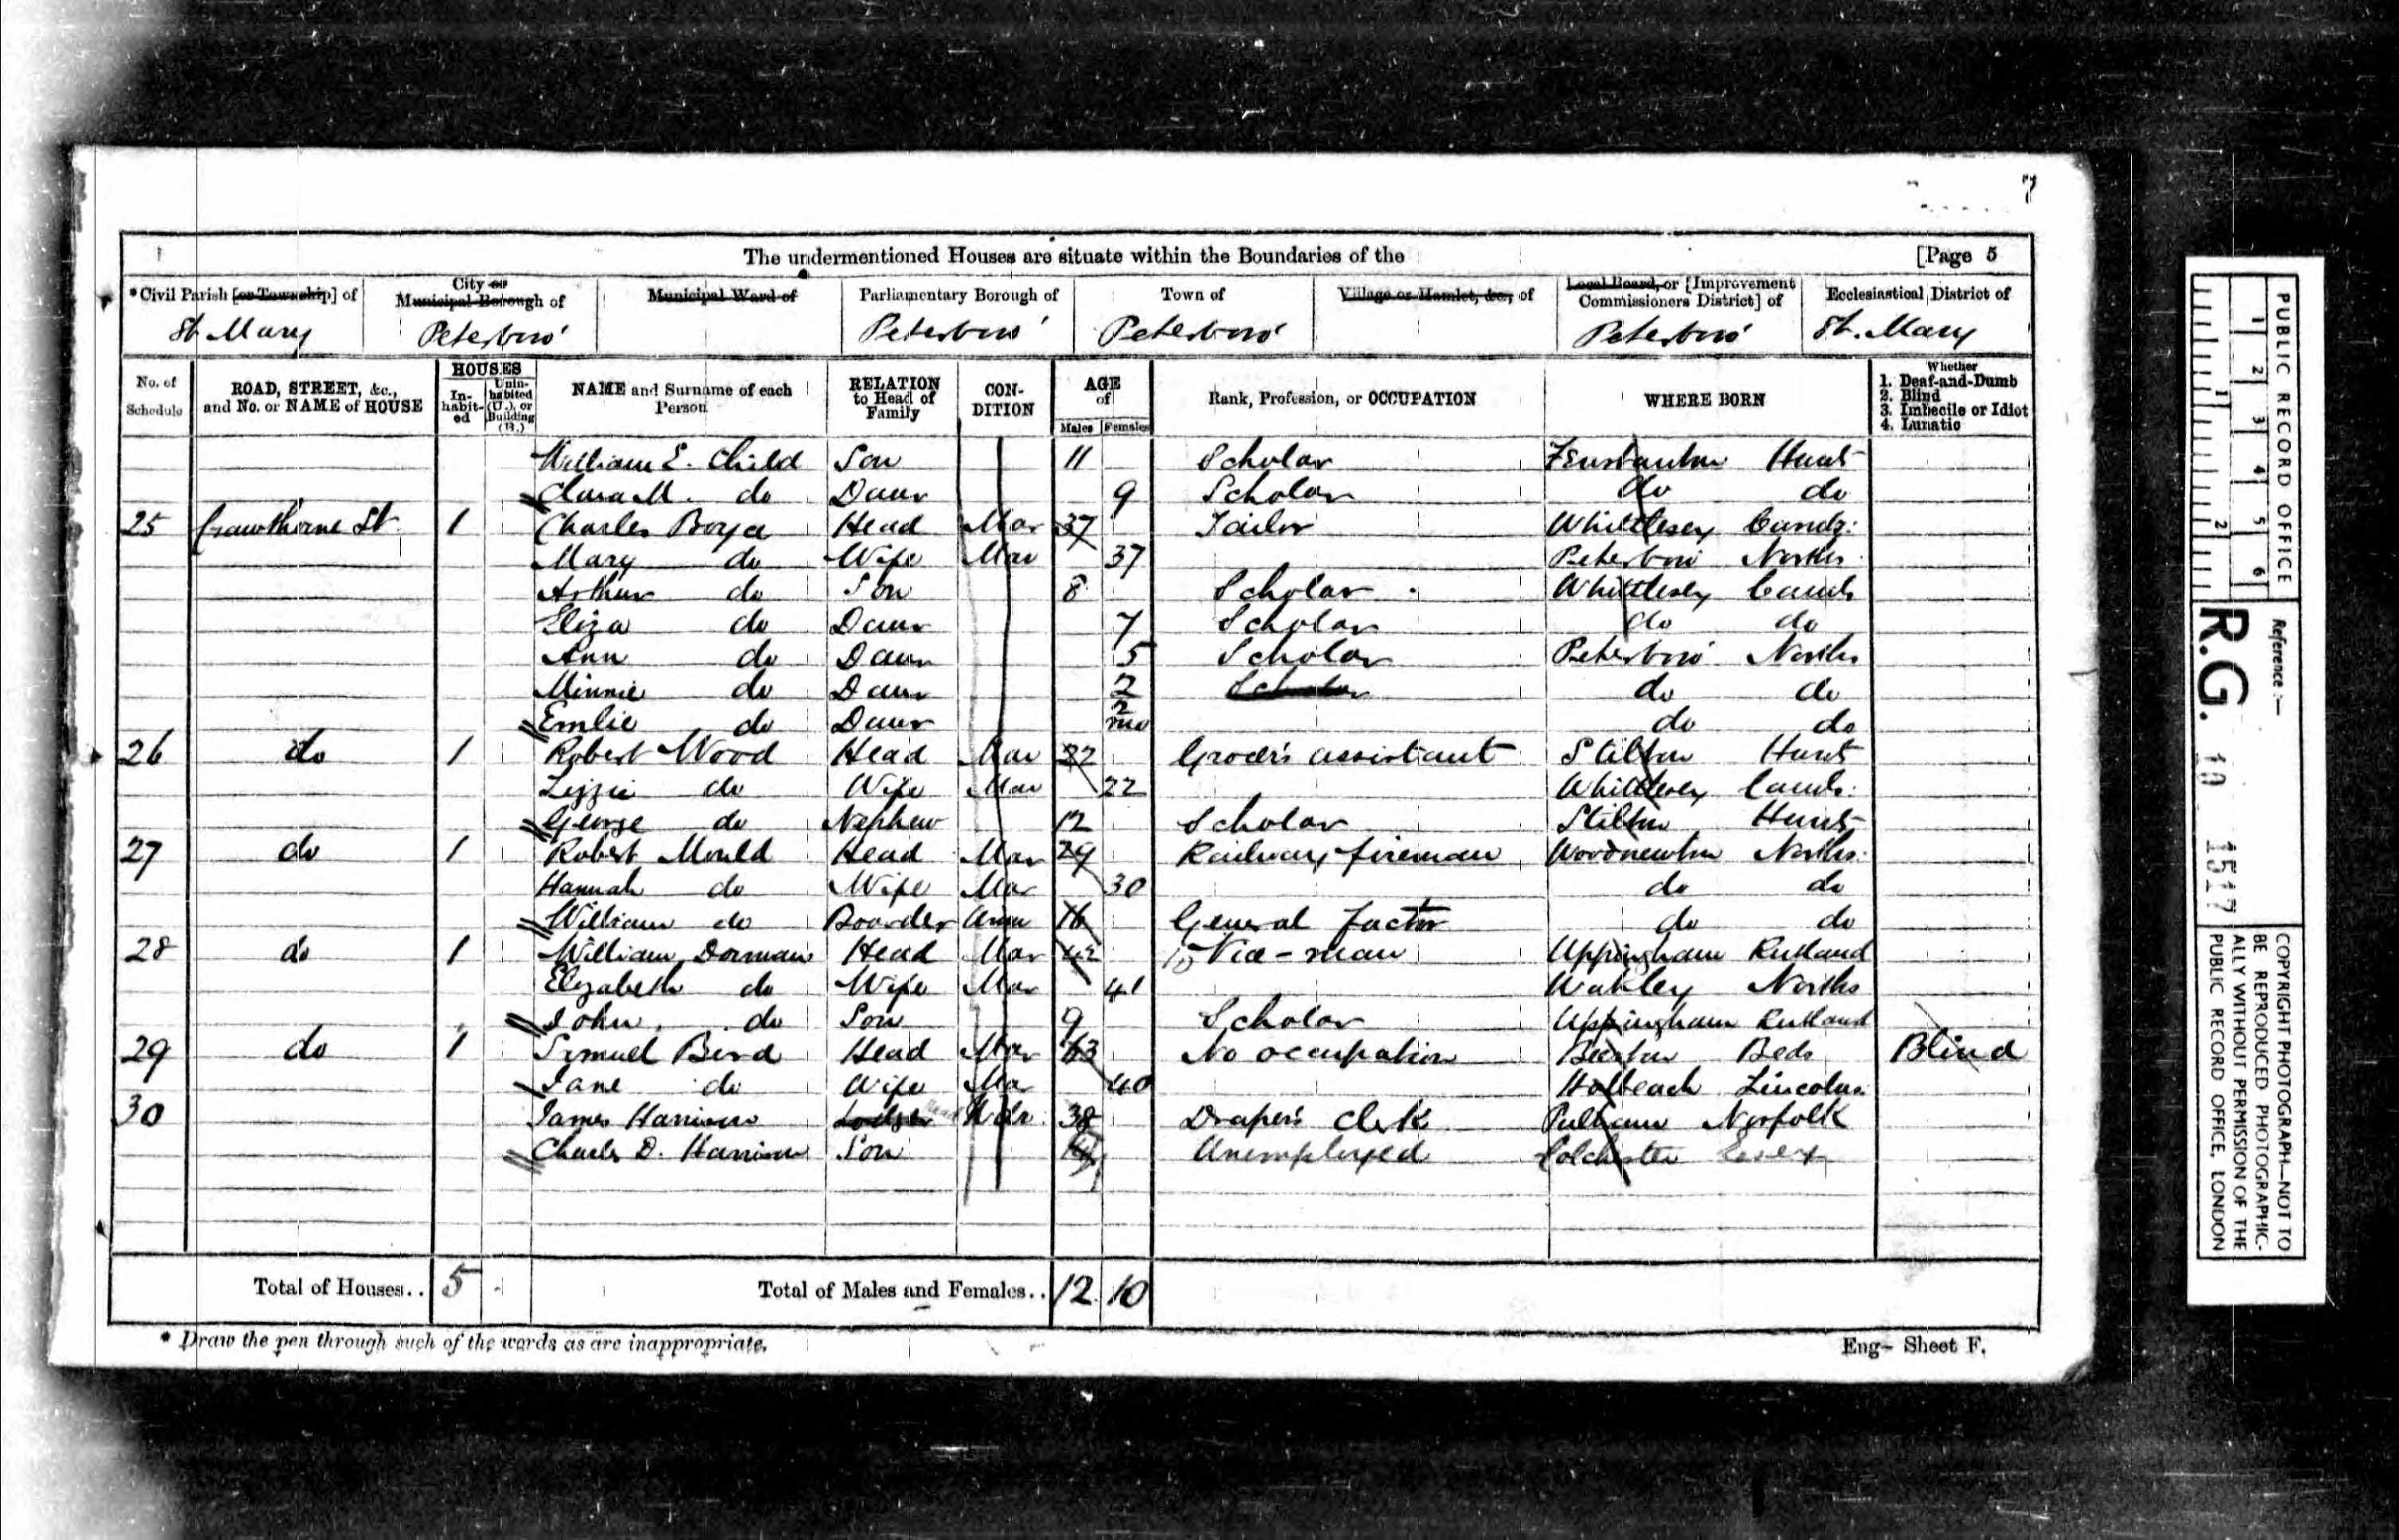 7
The undermentioned Houses are situate within the Boundaries of the [Page 5
*Civil Parish [or Township] of City or Municipal Borough of Municipal Ward of Parliamentary Borough of Town of Village or Hamlet, &c., of Local Board, or [Improvement Commissioners District] of Ecclesiastical District of
St. Mary Peterboro' Peterboro' Peterboro' Peterboro' St. Mary
No. of Schedule ROAD, STREET, &c., and No. or NAME of HOUSE HOUSES Inhabited Uninhabited (U.), or Building (B.) NAME and Surname of each Person RELATION to Head of Family CONDITION AGE of Males Females Rank, Profession, or OCCUPATION WHERE BORN Whether 1. Deaf-and-Dumb 2. Blind 3. Imbecile or Idiot 4. Lunatic
William E. Child Son 11 Scholar Fenstanton Hunts
Clara M. do Daur 9 Scholar do do
25 Crawthorne St 1 Charles Boyce Head Mar 37 Tailor Whittlesey Cambs:
Mary do Wife Mar 37 Peterboro' Norths
Arthur do Son 8 Scholar Whittlesey Cambs
Eliza do Daur 7 Scholar do do
Ann do Daur 5 Scholar Peterboro' Norths
Minnie do Daur 2 Scholar do do
Emlie do Daur 2 mo do do
26 do 1 Robert Wood Head Mar 22 Grocer's assistant Stilton Hunts
Lizzie do Wife Mar 22 Whittlesey Cambs:
George do Nephew 12 Scholar Stilton Hunts
27 do 1 Robert Mould Head Mar 29 Railway fireman Woodnewton Norths:
Hannah do Wife Mar 30 do do
William do Boarder Unm 16 General Factor do do
28 do 1 William Dorman Head Mar 42 Vice-man Uppingham Rutland
Elizabeth do Wife Mar 41 Wakley Norths
John do Son 9 Scholar Uppingham Rutland
29 do 1 Samuel Bird Head Mar 63 No occupation Beeston Beds Blind
Jane do Wife Mar 40 Holbeach Lincolns:
30 James Harrison Lodger Head Wdr. 38 Draper's Clerk Pulham Norfolk
Charles D. Harrison Son Unemployed Colchester Essex
Total of Houses.. 5 - Total of Males and Females.. 12 10
* Draw the pen through such of the words as are inappropriate.
Eng- Sheet F.
PUBLIC RECORD OFFICE
1 2 3 4 5 6
1 2
Reference :-
R.G. 10 1517
COPYRIGHT PHOTOGRAPH—NOT TO
BE REPRODUCED PHOTOGRAPHIC-
ALLY WITHOUT PERMISSION OF THE
PUBLIC RECORD OFFICE, LONDON